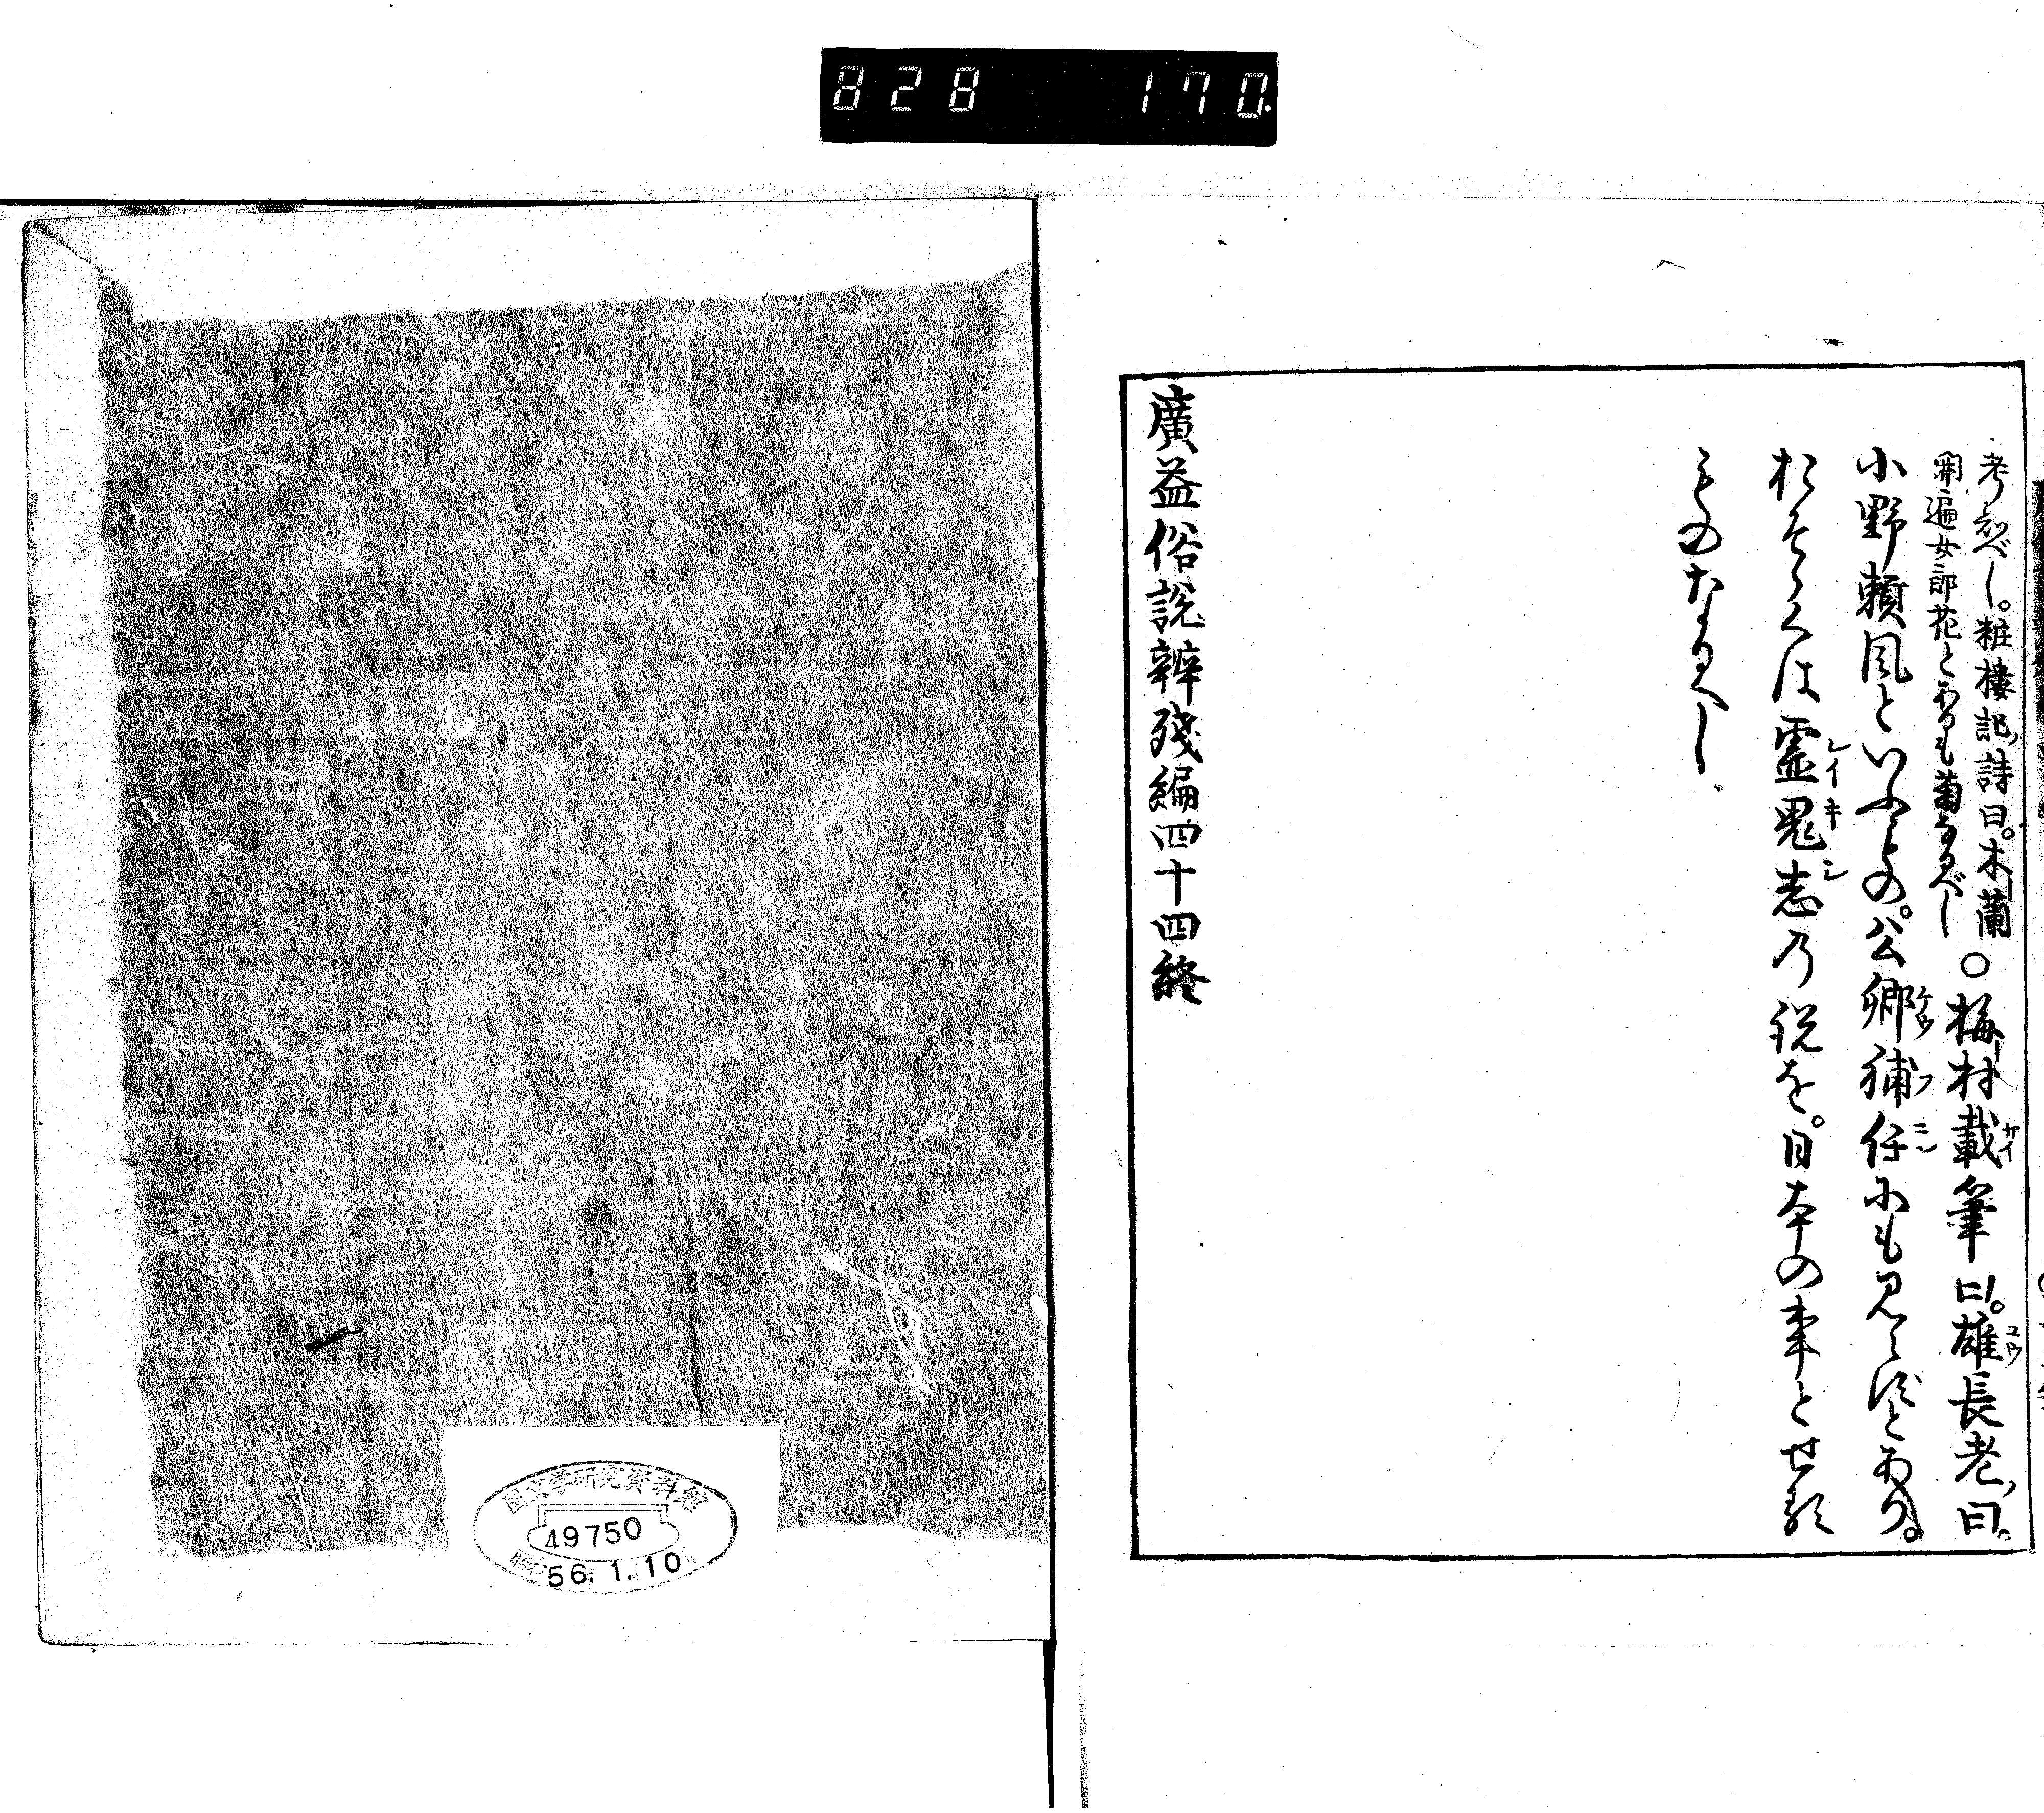 828 170.
考ふべし。粧楼記、詩曰。木蘭
開遍女郎花とあるも菊なるべし
○梅村載筆曰。雄長老、曰。
小野頼風といふもの。公卿補任にも見えずとあり。
おそらくは霊鬼志乃説を。日本の事とせる
ものなるべし
廣益俗說辨殘編四十四終
国文学研究資料館
49750
56.1.10